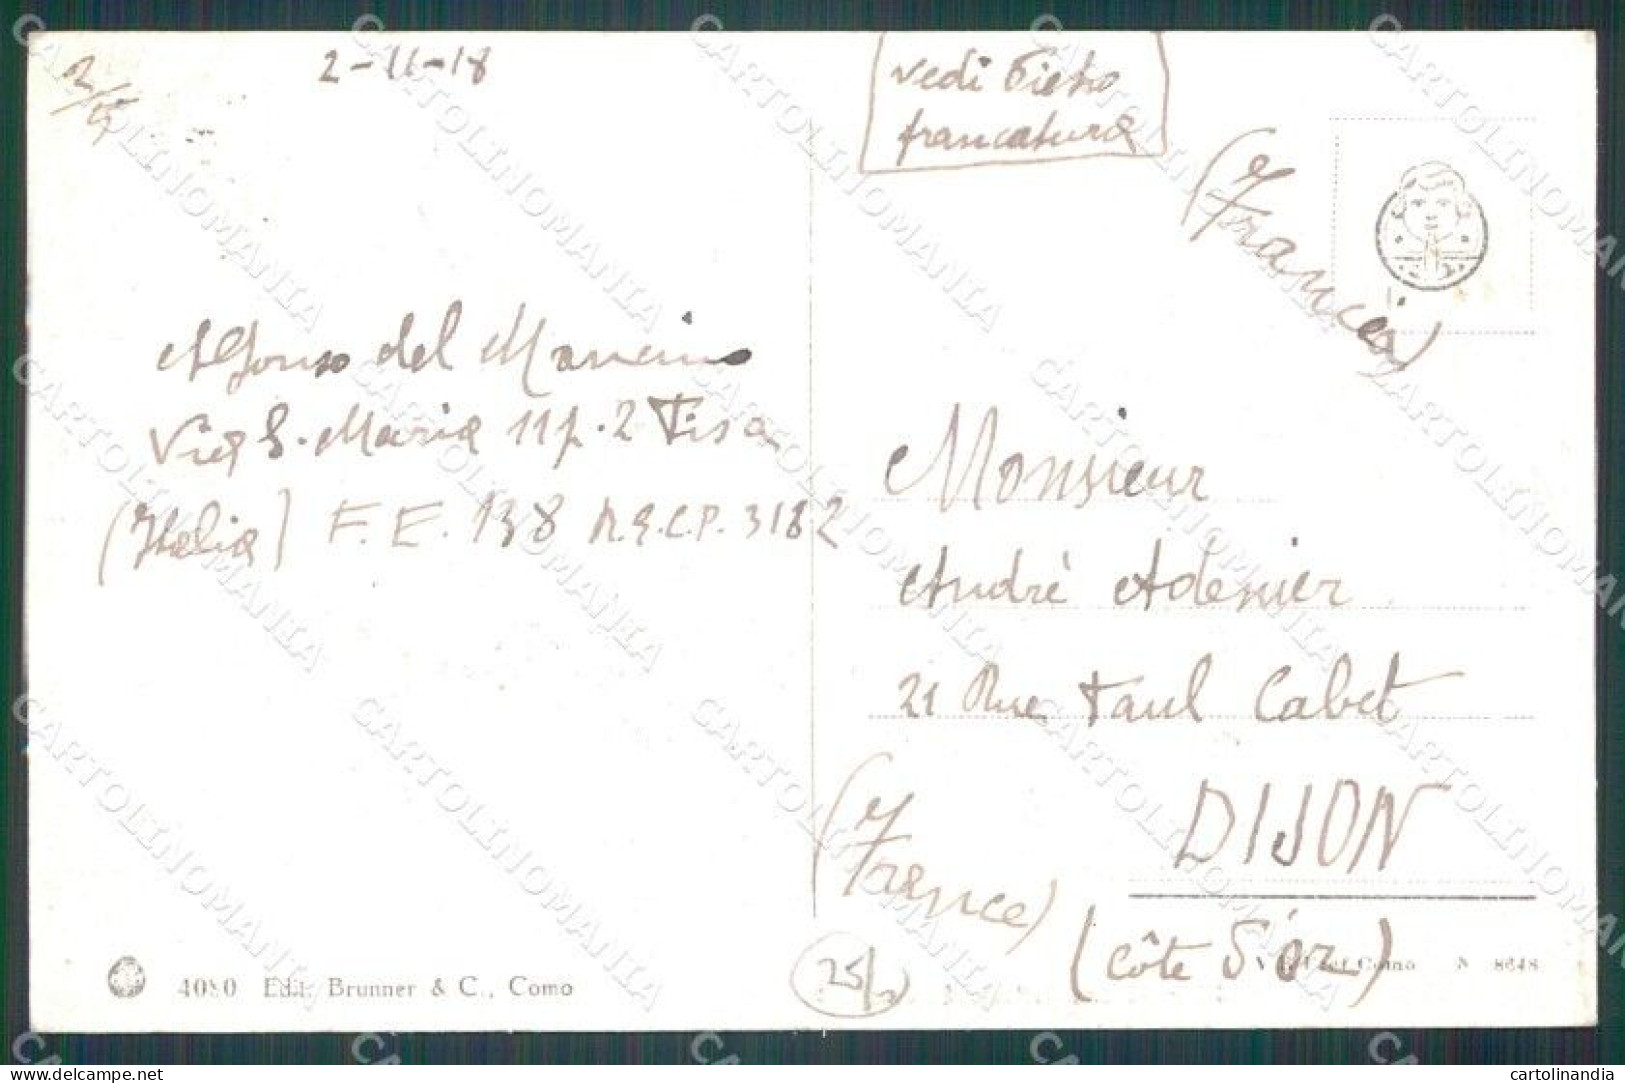 2-11-18
vedi Pietro
francatura
(Francia)
Alfonso del Mancino
Via S. Maria 11 p. 2 Pisa
(Italia) F. E. 138 N.E.C.P. 3182
Monsieur
André Adenier
21 Rue Paul Cabet
DIJON
(France)
(Côte d'or)
25/
4080 Edit. Brunner & C., Como
N 8648
cartolinandia